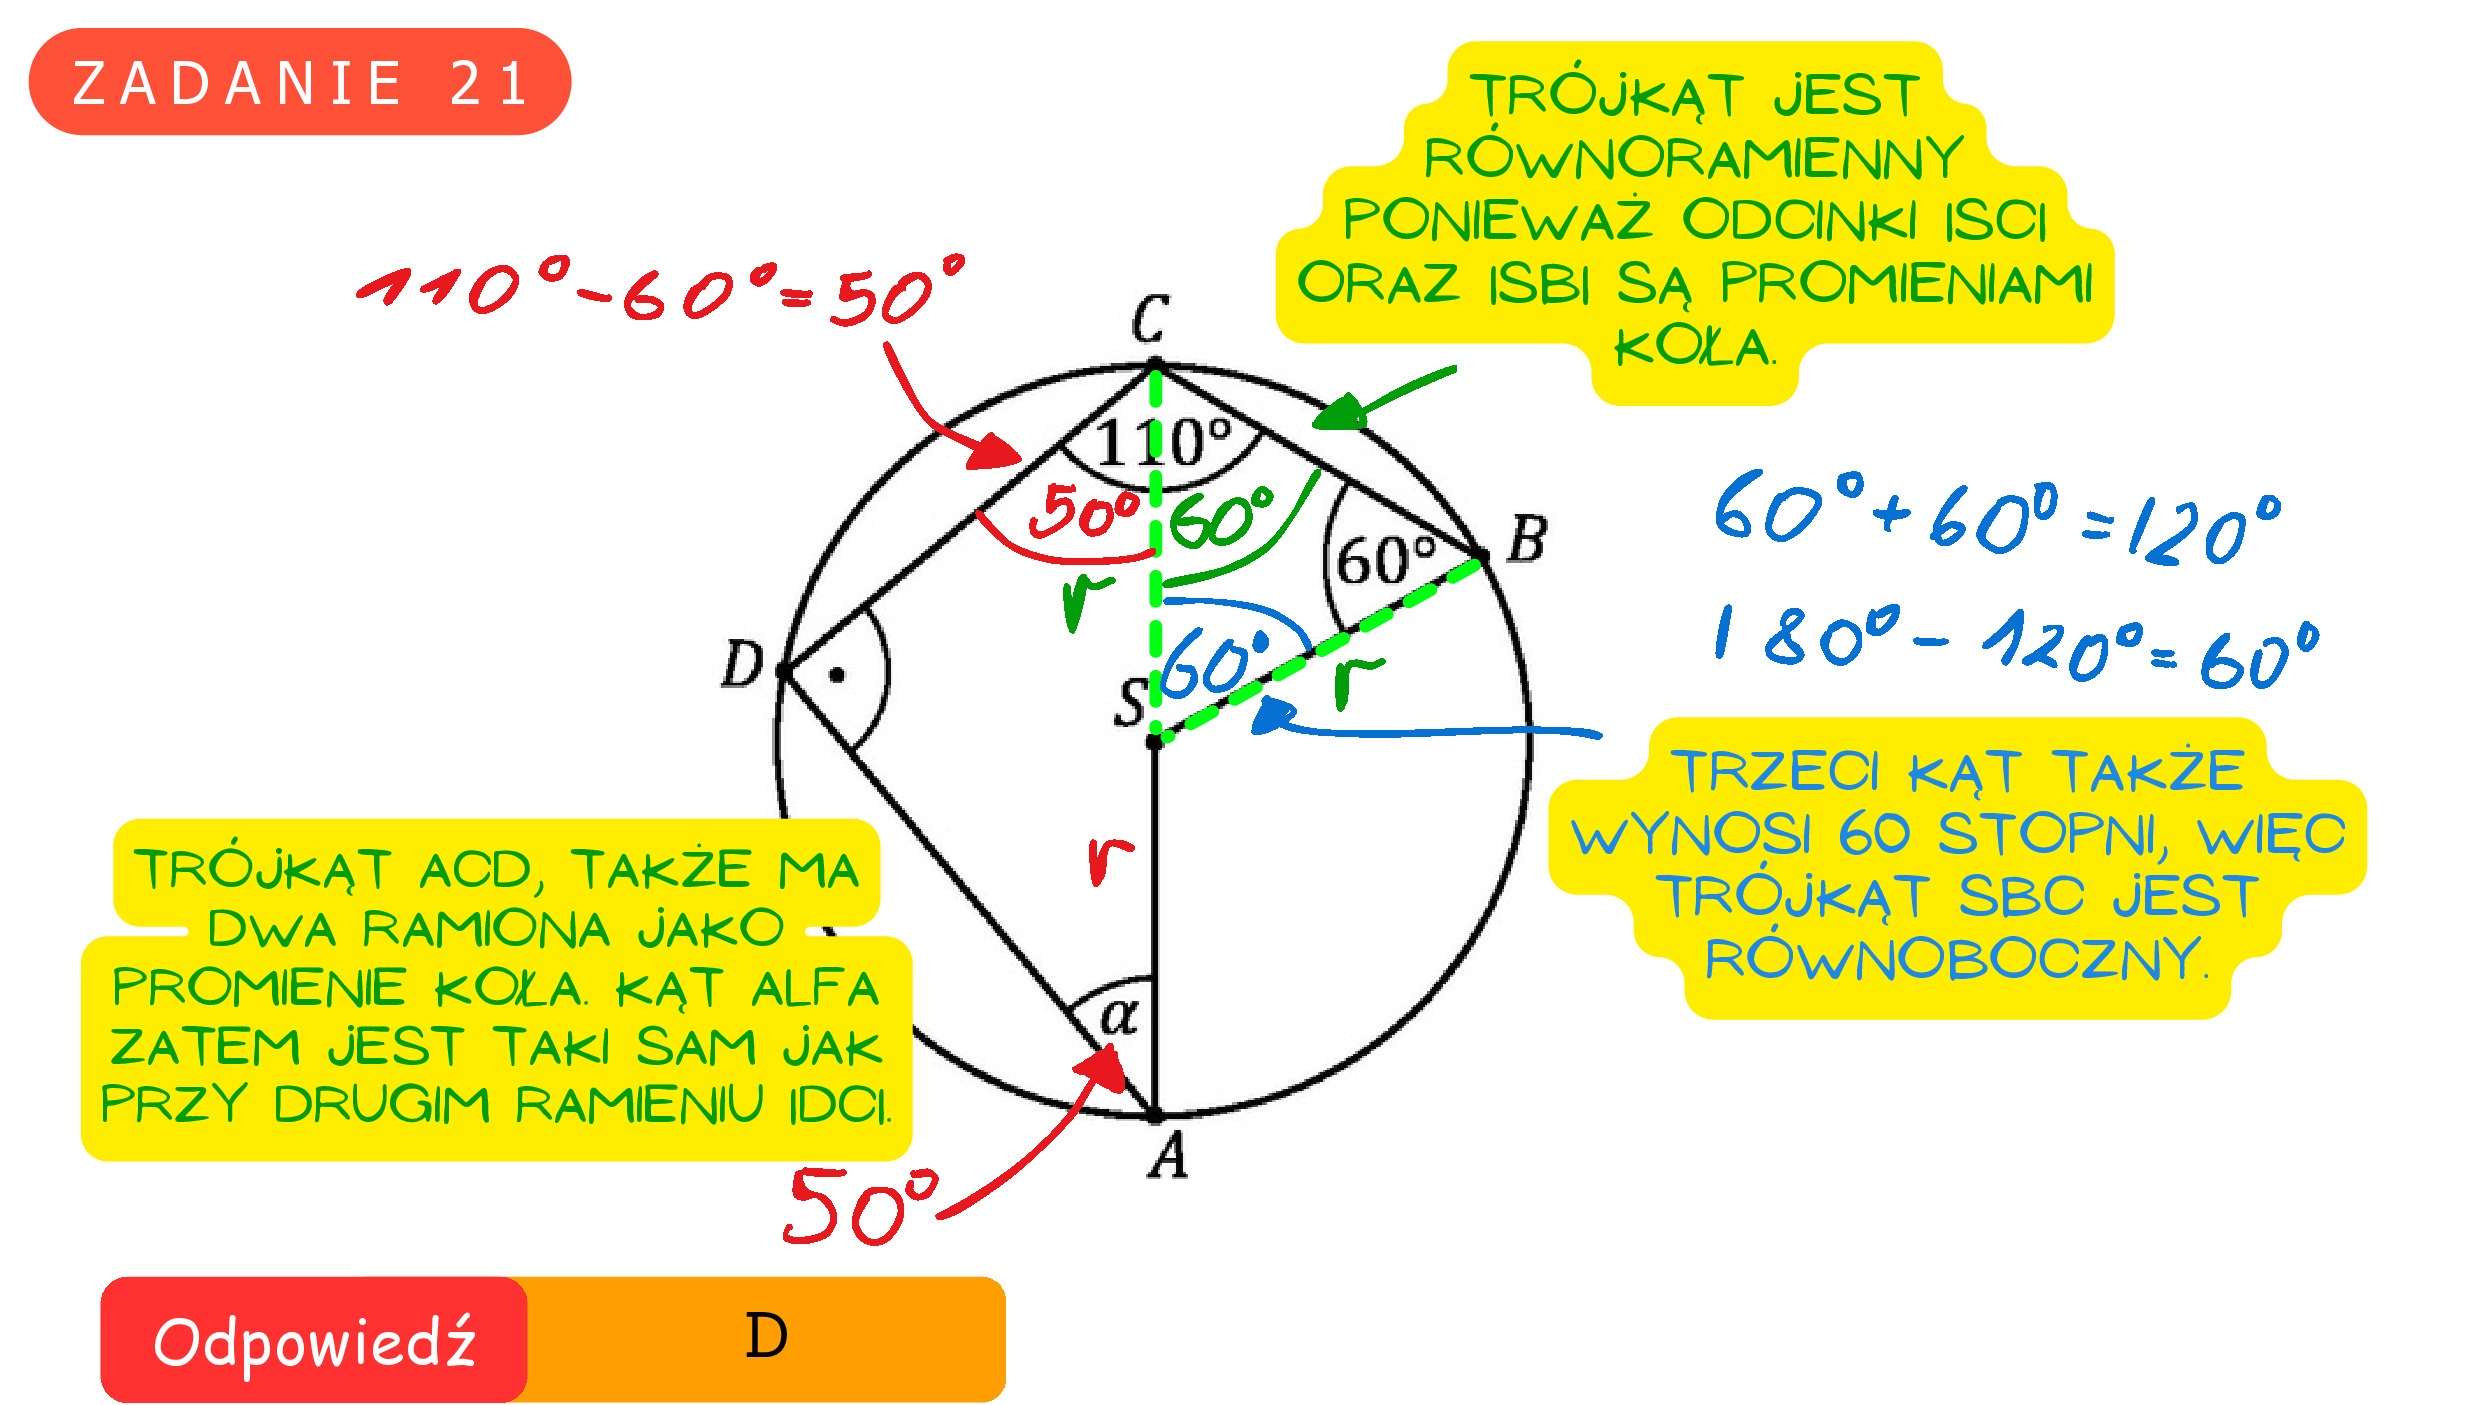 ZADANIE 21
TRÓJKĄT JEST
RÓWNORAMIENNY
PONIEWAŻ ODCINKI ISCI
ORAZ ISBI SĄ PROMIENIAMI
KOŁA.
110°-60°=50°
C
110°
50°
60°
B
60°
r
60°+60°=120°
180°-120°=60°
D
S
60°
r
TRZECI KĄT TAKŻE
WYNOSI 60 STOPNI, WIĘC
TRÓJKĄT SBC JEST
RÓWNOBOCZNY.
r
TRÓJKĄT ACD, TAKŻE MA
DWA RAMIONA JAKO
PROMIENIE KOŁA. KĄT ALFA
ZATEM JEST TAKI SAM JAK
PRZY DRUGIM RAMIENIU IDCI.
α
A
50°
Odpowiedź
D